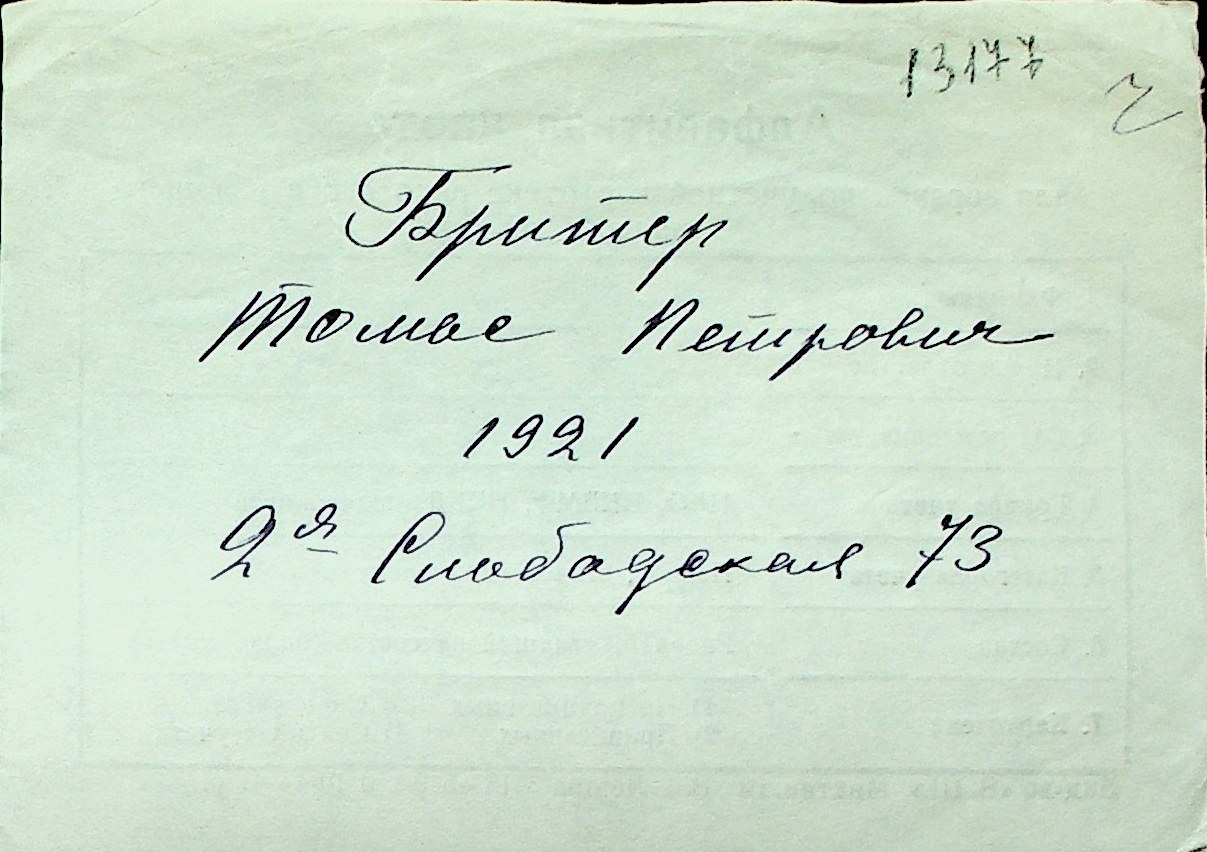 13177
Бритер
Томас Петрович
1921
2я Слободская 73